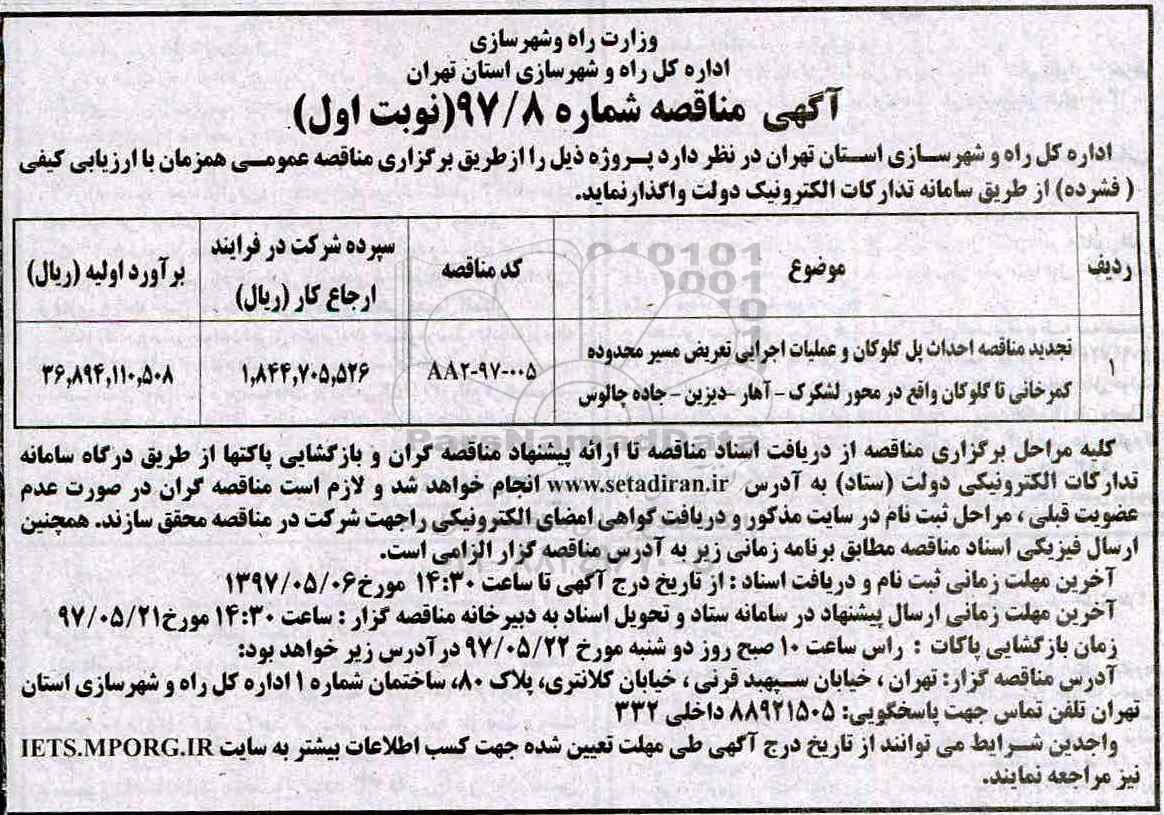 وزارت راه وشهرسازی
اداره کل راه و شهرسازی استان تهران
آگهی مناقصه شماره ۹۷/۸(نوبت اول)
اداره کل راه و شهرسازی استان تهران در نظر دارد پروژه ذیل را ازطریق برگزاری مناقصه عمومی همزمان با ارزیابی کیفی
( فشرده) از طریق سامانه تدارکات الکترونیک دولت واگذارنماید.
ردیف	موضوع	کد مناقصه	سپرده شرکت در فرایند ارجاع کار (ریال)	برآورد اولیه (ریال)
۱	تجدید مناقصه احداث پل گلوکان و عملیات اجرایی تعریض مسیر محدوده	AA۲-۹۷-۰۰۵	۱,۸۴۴,۷۰۵,۵۲۶	۳۶,۸۹۴,۱۱۰,۵۰۸
کمرخانی تا گلوکان واقع در محور لشکرک – آهار –دیزین – جاده چالوس
010101
0001
10
01
ParsNamadData
کلیه مراحل برگزاری مناقصه از دریافت اسناد مناقصه تا ارائه پیشنهاد مناقصه گران و بازگشایی پاکتها از طریق درگاه سامانه
تدارکات الکترونیکی دولت (ستاد) به آدرس www.setadiran.ir انجام خواهد شد و لازم است مناقصه گران در صورت عدم
عضویت قبلی ، مراحل ثبت نام در سایت مذکور و دریافت گواهی امضای الکترونیکی راجهت شرکت در مناقصه محقق سازند. همچنین
ارسال فیزیکی اسناد مناقصه مطابق برنامه زمانی زیر به آدرس مناقصه گزار الزامی است.
آخرین مهلت زمانی ثبت نام و دریافت اسناد : از تاریخ درج آگهی تا ساعت ۱۴:۳۰ مورخ۱۳۹۷/۰۵/۰۶
آخرین مهلت زمانی ارسال پیشنهاد در سامانه ستاد و تحویل اسناد به دبیرخانه مناقصه گزار : ساعت ۱۴:۳۰ مورخ۹۷/۰۵/۲۱
زمان بازگشایی پاکات : راس ساعت ۱۰ صبح روز دو شنبه مورخ ۹۷/۰۵/۲۲ درآدرس زیر خواهد بود:
آدرس مناقصه گزار: تهران ، خیابان سپهبد قرنی ، خیابان کلانتری، پلاک ۸۰، ساختمان شماره ۱ اداره کل راه و شهرسازی استان
تهران تلفن تماس جهت پاسخگویی: ۸۸۹۲۱۵۰۵ داخلی ۳۳۲
واجدین شرایط می توانند از تاریخ درج آگهی طی مهلت تعیین شده جهت کسب اطلاعات بیشتر به سایت IETS.MPORG.IR
نیز مراجعه نمایند.